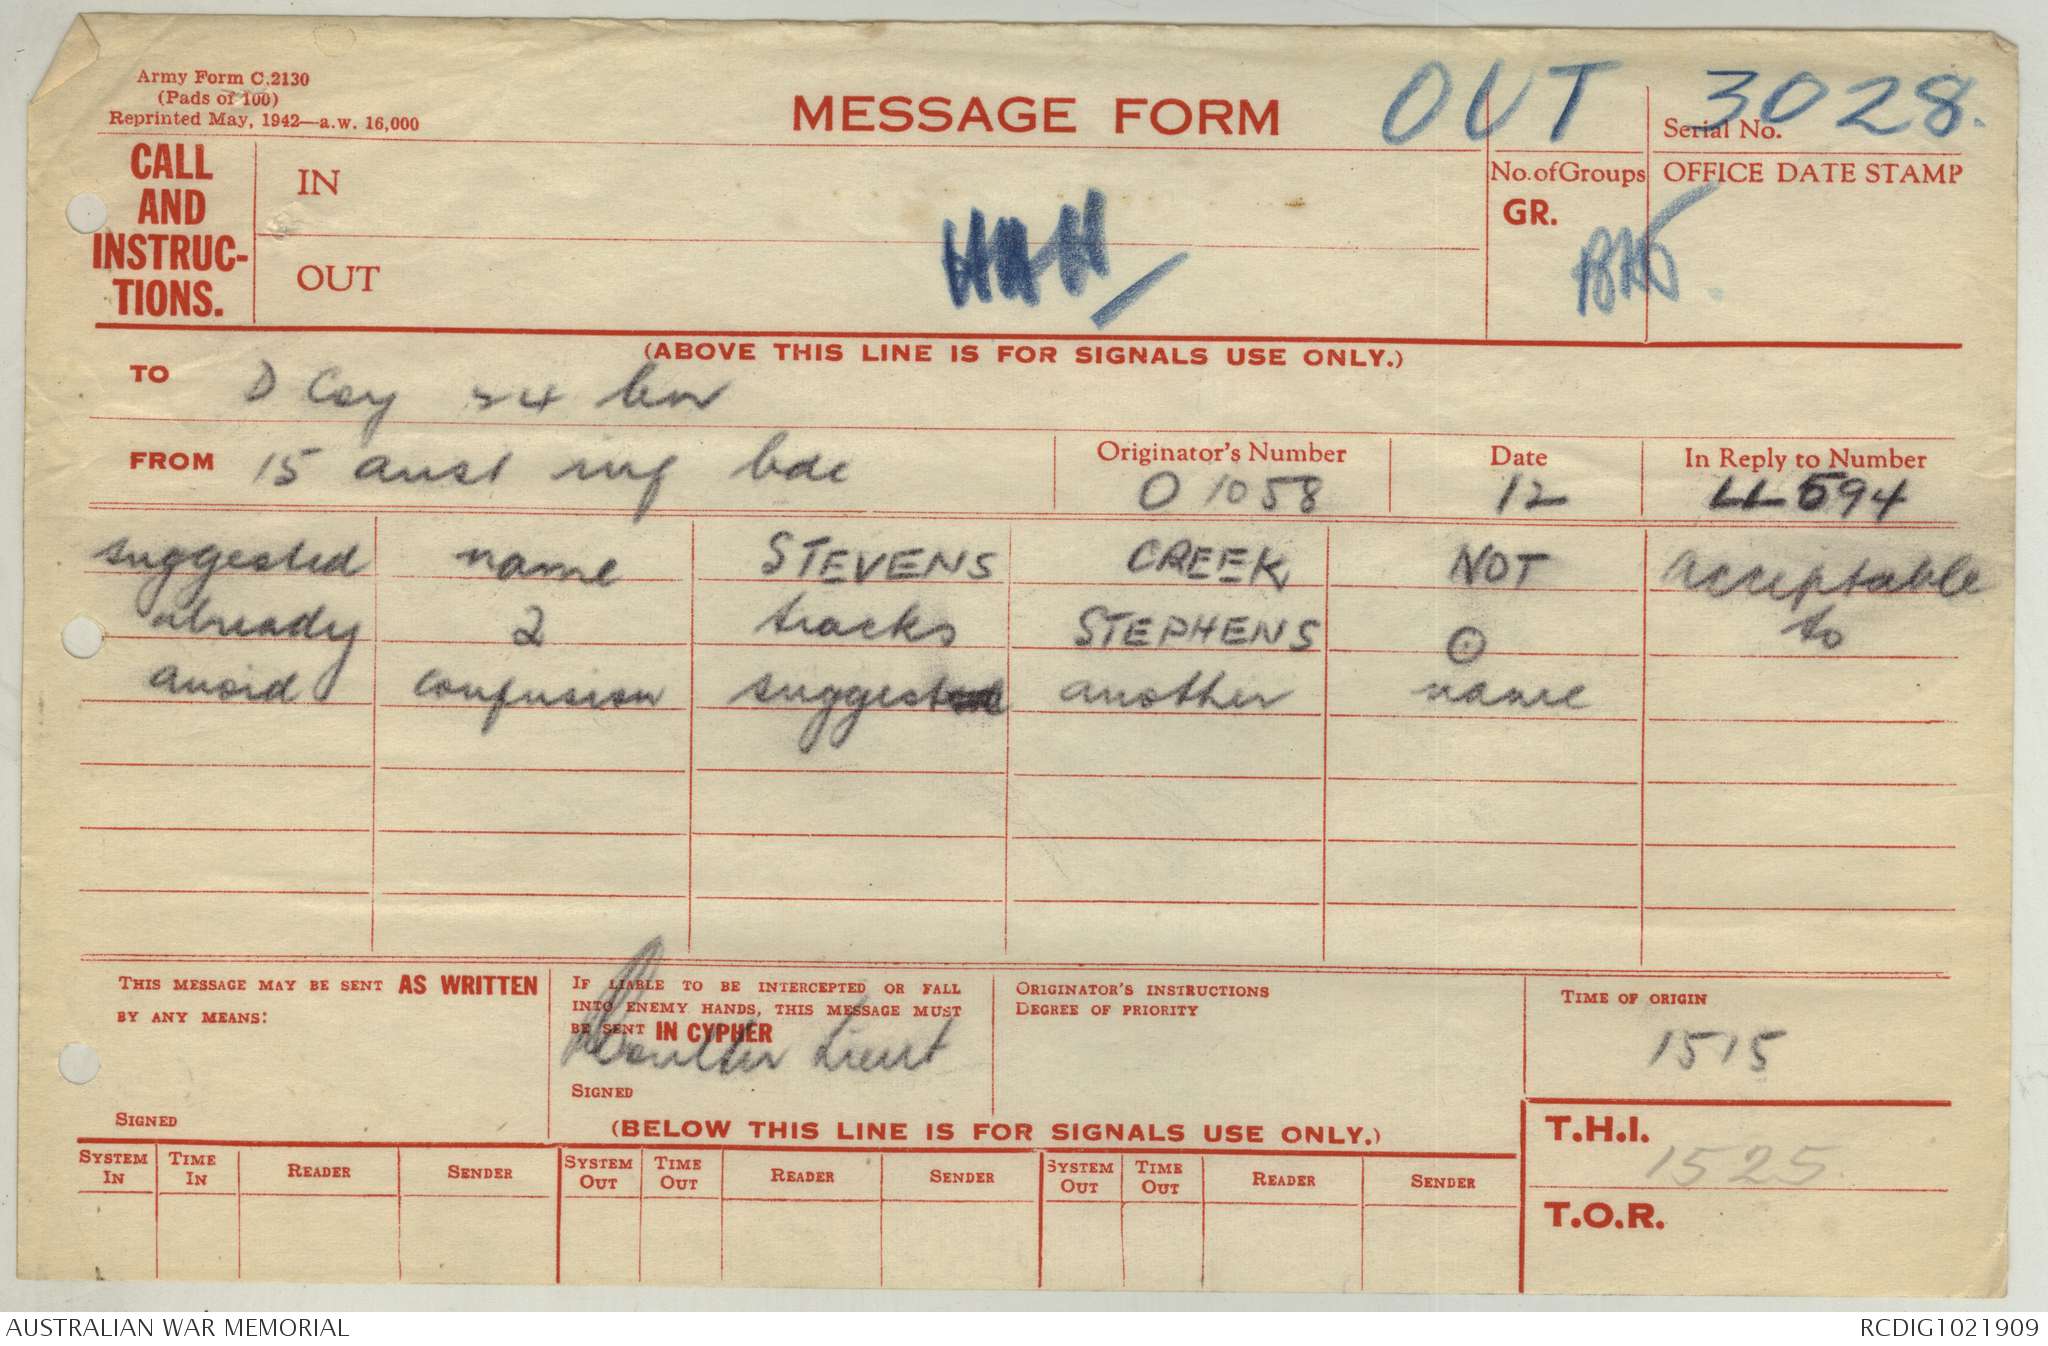 Army Form C.2130
(Pads of 100)
Reprinted May, 1942—a.w. 16,000
MESSAGE FORM
OUT 3028.
Serial No.
CALL AND INSTRUC-TIONS.
IN
OUT
No. of Groups
GR.
OFFICE DATE STAMP
(ABOVE THIS LINE IS FOR SIGNALS USE ONLY.)
TO D Coy 24 bn
FROM 15 aust inf bde
Originator's Number O 1058
Date 12
In Reply to Number LL 594
suggested name STEVENS CREEK NOT acceptable
already 2 tracks STEPHENS ⊙ to
avoid confusion suggest another name
THIS MESSAGE MAY BE SENT AS WRITTEN
BY ANY MEANS:
SIGNED
IF LIABLE TO BE INTERCEPTED OR FALL
INTO ENEMY HANDS, THIS MESSAGE MUST
BE SENT IN CYPHER
Coulter Lieut
SIGNED
ORIGINATOR'S INSTRUCTIONS
DEGREE OF PRIORITY
TIME OF ORIGIN
1515
(BELOW THIS LINE IS FOR SIGNALS USE ONLY.)
T.H.I.
1525
T.O.R.
SYSTEM IN TIME IN READER SENDER SYSTEM OUT TIME OUT READER SENDER SYSTEM OUT TIME OUT READER SENDER
AUSTRALIAN WAR MEMORIAL
RCDIG1021909